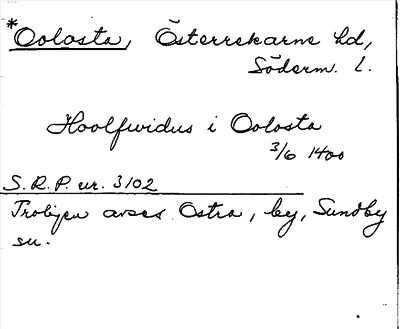 *Oolosta, Österrekarne hd,
Söderm. l.
Hoolfwidus i Oolosta
3/6 1400
S.R.P. nr. 3102
Troligen avses Ostra, by, Sundby
sn.